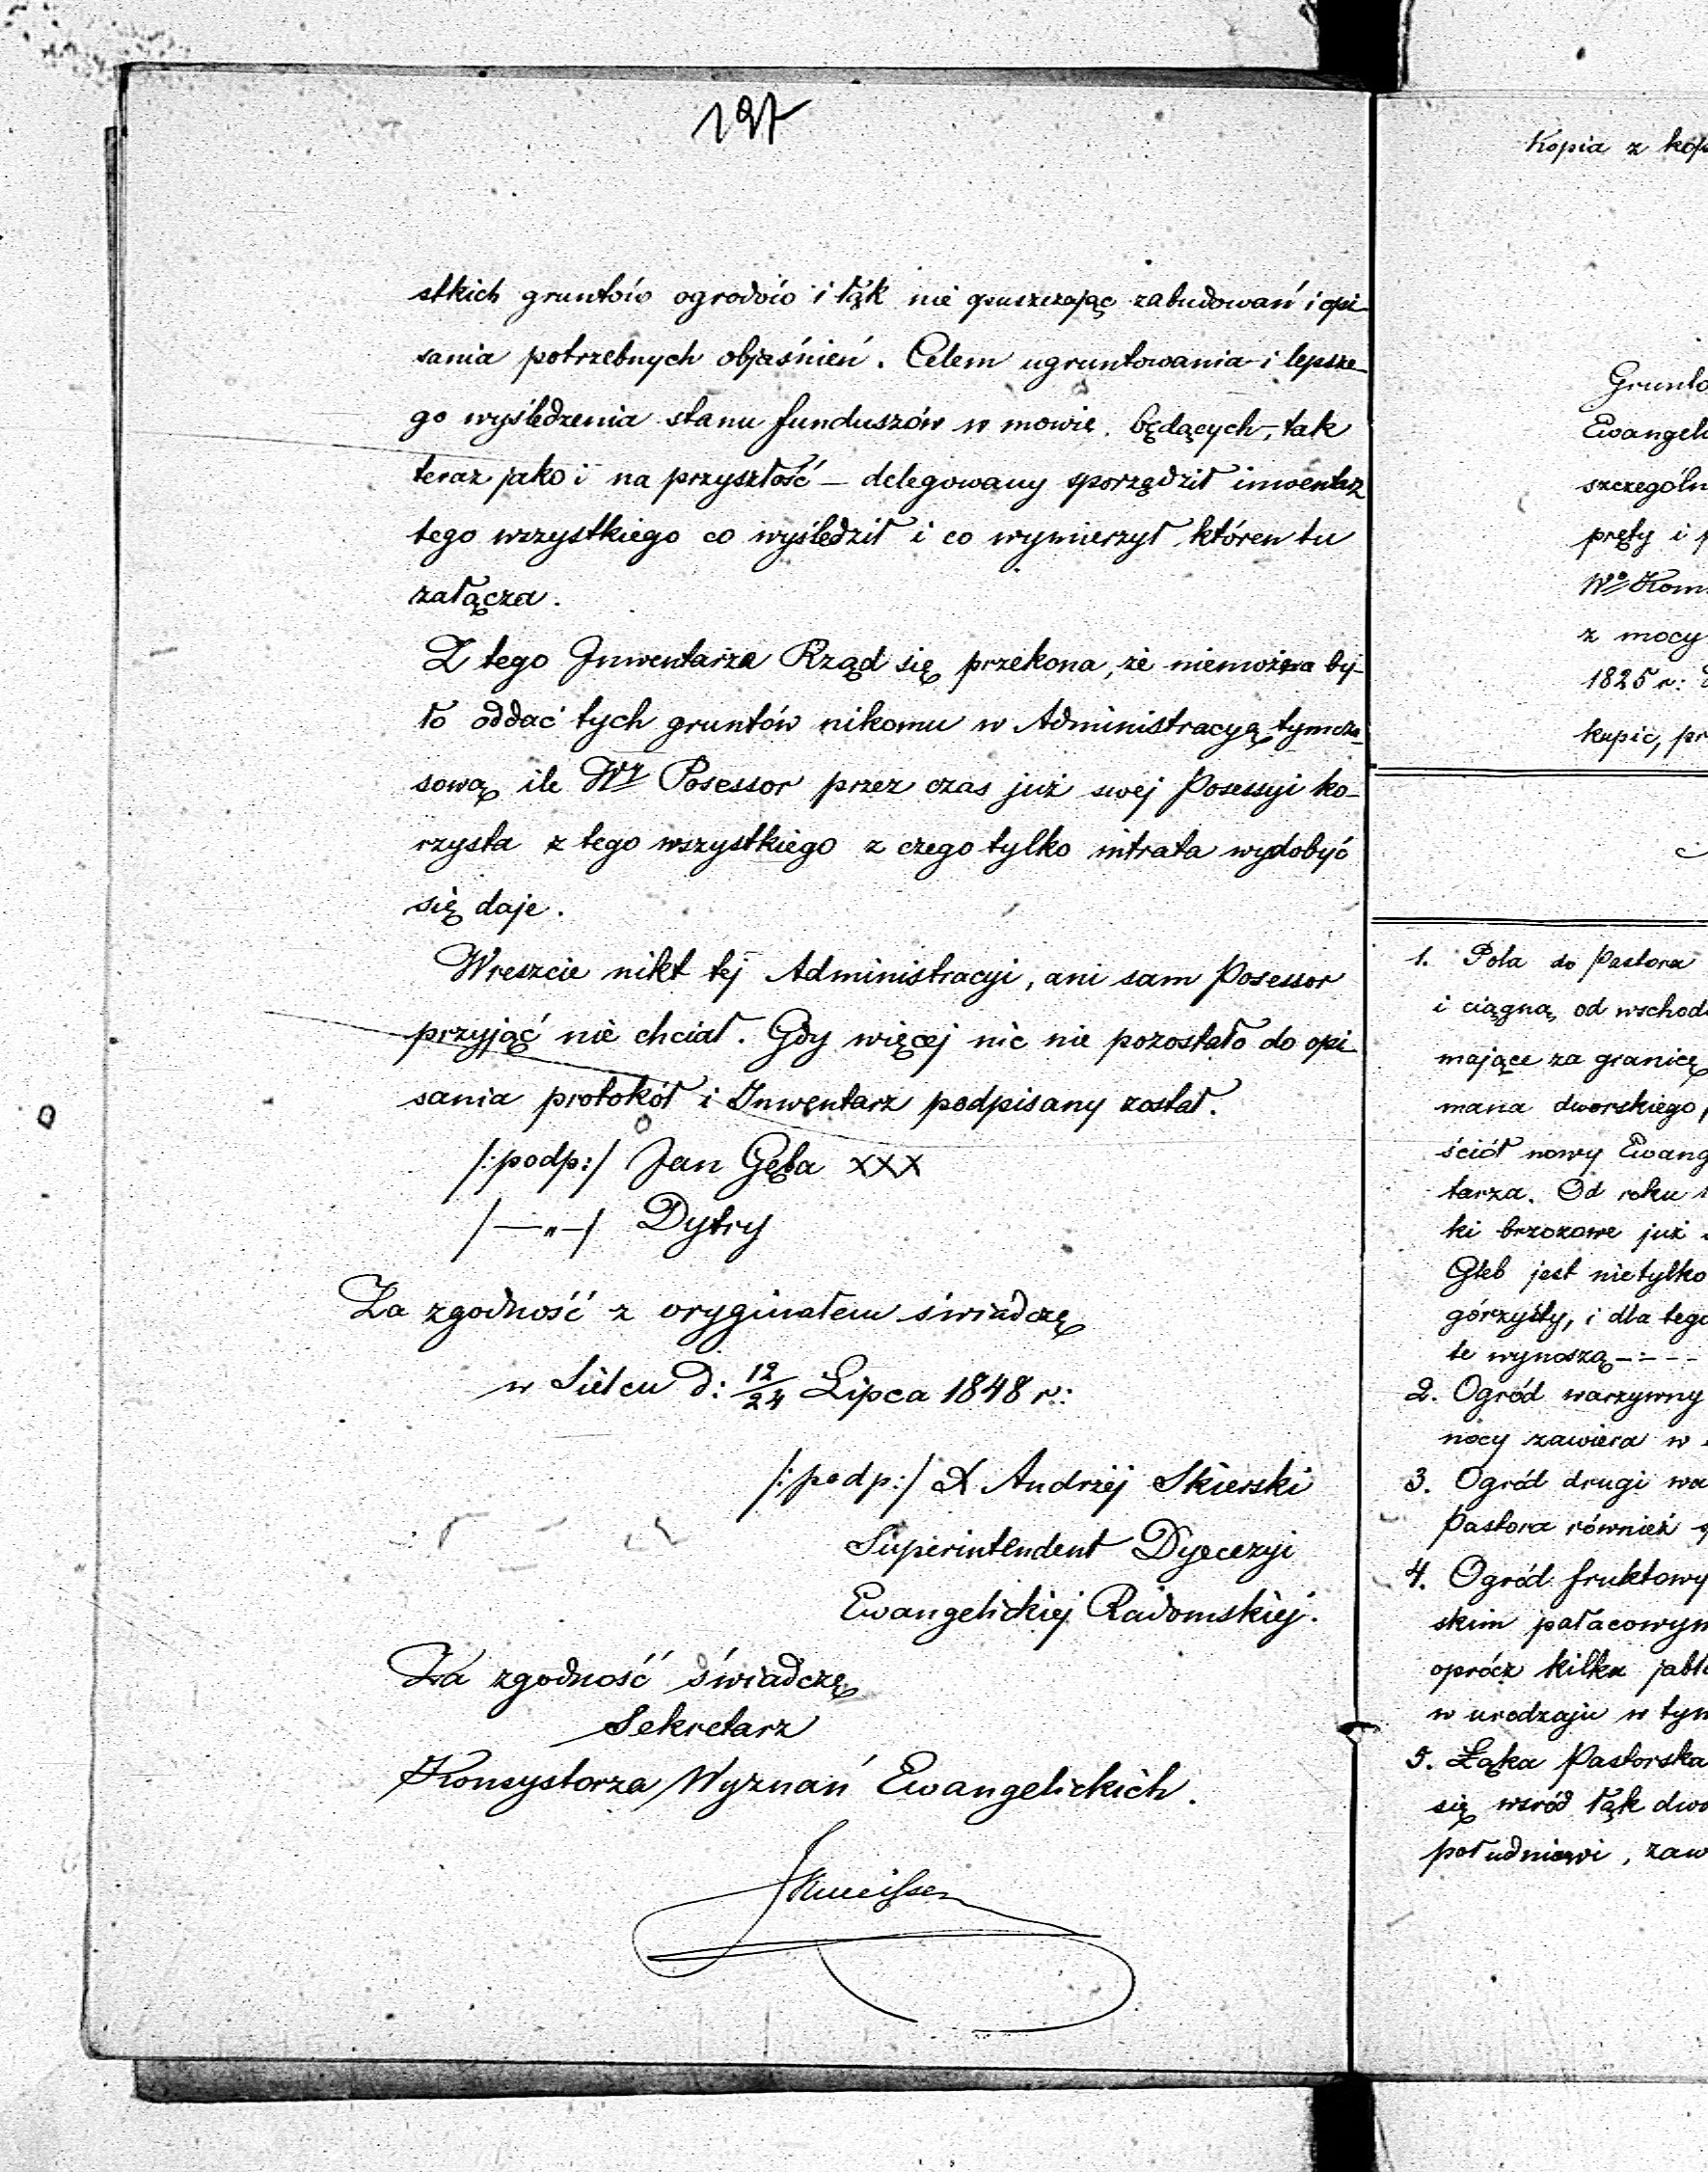 197
stkich gruntów ogrodów i łąk nie opuszczając zabudowań i opi
sania potrzebnych objaśnień. Celem ugruntowania i lepsze-
go wyśledzenia stanu funduszów w mowie będących, tak
teraz jako i na przyszłość – delegowany sporządził inwentarz
tego wszystkiego co wyśledził i co wymierzył któren tu
załącza.
Z tego Inwentarza Rząd się przekona, że niemożna by-
ło oddać tych gruntów nikomu w Administracyą tymcza-
sową ile Wż Posessor przez czas już swej Posessyi ko-
rzysta z tego wszystkiego z czego tylko intrata wydobyć
się daje.
Wreszcie nikt tej Administracyi, ani sam Posessor
przyjąć nie chciał. Gdy więcej nic nie pozostało do opi
sania protokół i Inwentarz podpisany został.
/:podp:/ Jan Gęba XXX
/—„—/ Dytry
Za zgodność z oryginałem świadczę
w Sielcu d: 12/24 Lipca 1848 r:
/:podp:/ X Andrzej Skierski
Superintendent Dyecezyi
Ewangelickiej Radomskiej.
Za zgodność świadczę
Sekretarz
Konsystorza Wyznań Ewangelickich.
Kopia z kop
Grunto
Ewangeli
szczególn
pręty i p
Wo Kom
z mocy
1825 r:
kupić, pr
1. Pola do Pastora
i ciągną od wschod
mające za granicę
mana dworskiego
ściół nowy Ewang
tarza. Od roku
ki brzozowe już
Gleb jest nietylko
górzysty, i dla tego
te wynoszą - - - -
2. Ogród warzywny
nocy zawiera w
3. Ogród drugi wa
Pastora również
4. Ogród fruktowy
skim pałacowym
oprócz kilku jabł
w urodzaju w tym
5. Łąka Pastorska
się wśród łąk dwo
południowi, zaw